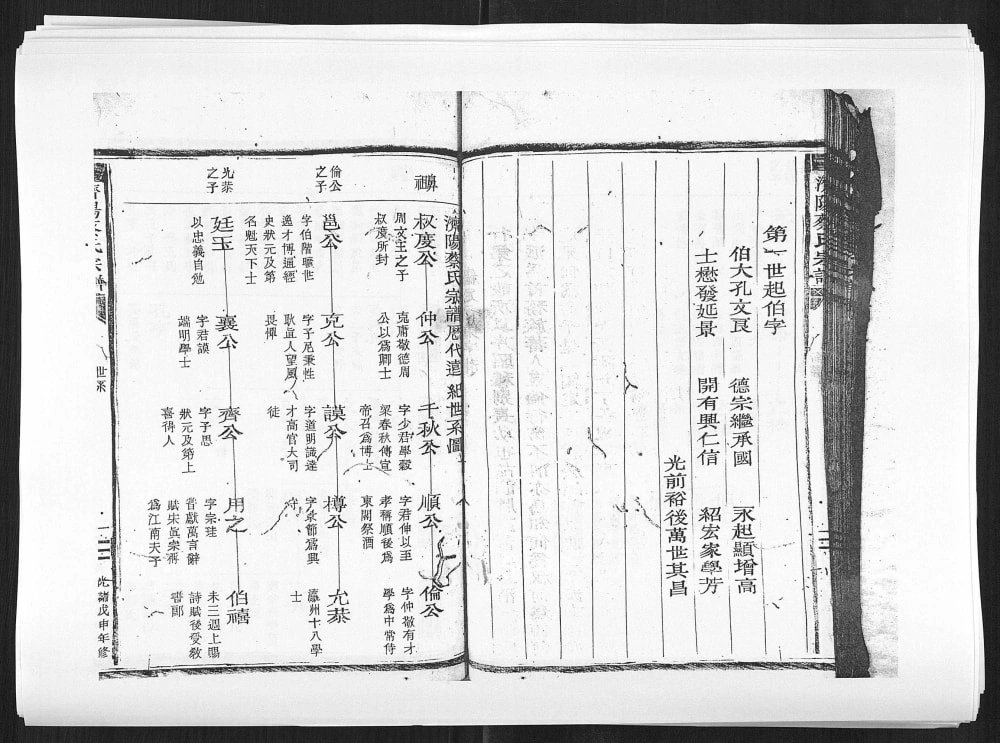 濟陽蔡氏宗譜
第一世起伯字
伯大孔文良 德宗繼承國 永起顯增高
士懋發延景 開有興仁信 紹宏家學芳
光前裕後萬世其昌
濟陽蔡氏宗譜歷代遠紀世系圖
鼻祖
叔度公
周文王之子
叔度所封
仲公
克庸敬德周
公以為卿士
千秋公
字少君學穀
梁春秋傳宣
帝召為博士
順公
字君伸以至
孝稱順後為
東閣祭酒
倫公
字仲敬有才
學為中常侍
倫公
之子
邕公
字伯階曠世
逸才博通經
史狀元及第
名魁天下士
克公
字子尼秉性
耿直人望風
畏憚
謨公
字道明識達
才高官大司
徒
樽公
守
允恭
瀛州十八學
士
允恭
之子
廷玉
以忠義自勉
襄公
字君謨
端明學士
齊公
字子思
狀元及第上
喜得人
用之
字宗珪
嘗獻萬言辭
賦宋真宗稱
為江南夫子
伯禧
未三週上賜
詩賦後受教
書郎
世系
光緒戊申年修